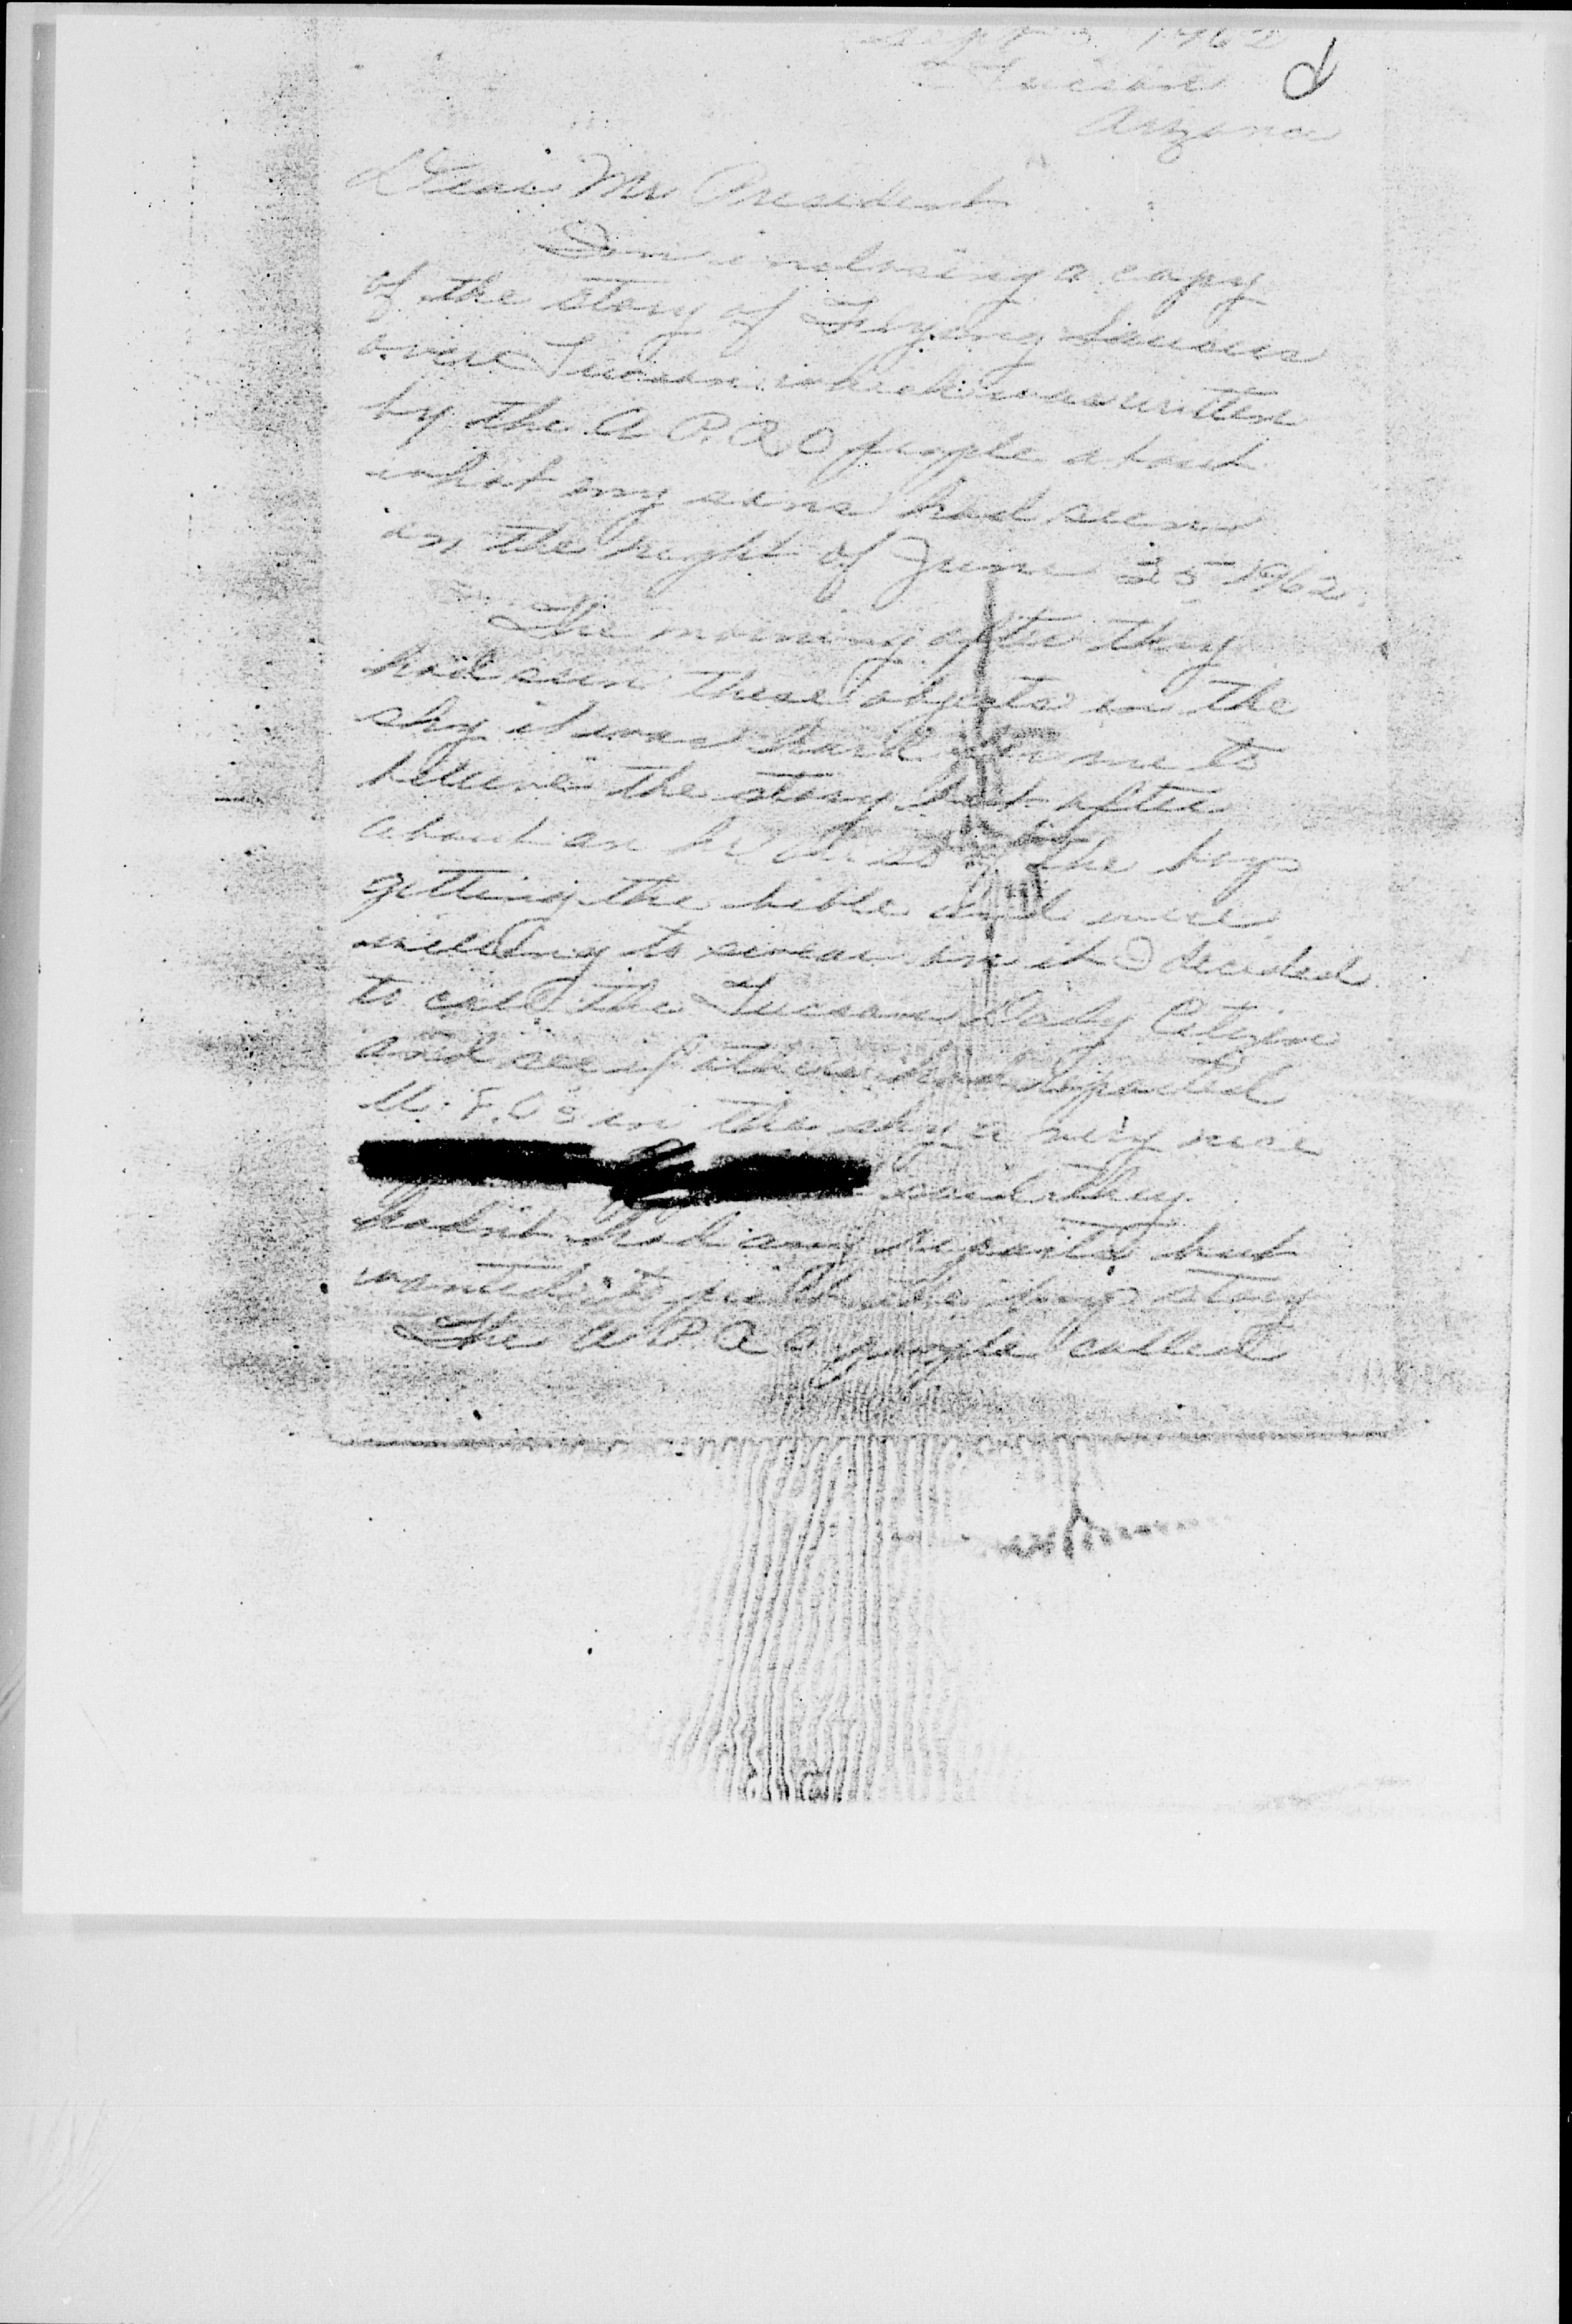 Sept 1962
Tucson
Arizona
Dear Mr President
I'm inclosing a copy
of the story of Flying Saucers
over Tucson which was written
by the A.P.R.O people about
what my sons had seen
on the night of June 25 1962.
The morning after they
had seen these objects in the
sky it was hard for me to
believe the story but after
about an hr the boys
getting the bible and were
willing to swear on it I decided
to call the Tucson Daily Citizen
and see if others had reported
U.F.Os in the sky a very nice
said they
hadn't had any reports but
wanted to the boys story
The A.P.R.O people called